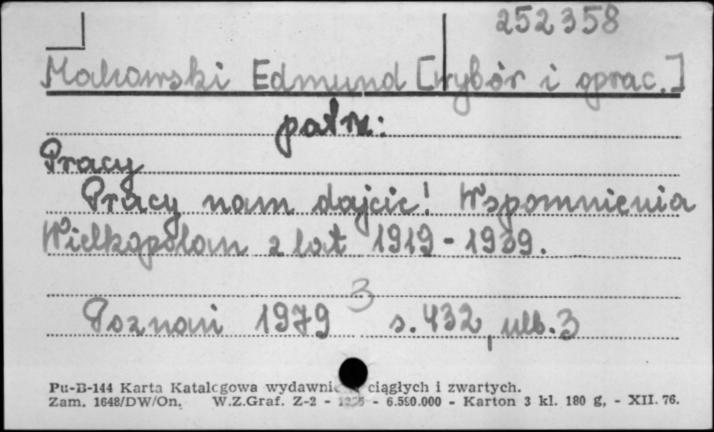 252358
Makowski Edmund [wybór i oprac.]
patrz:
Pracy
Pracy nam dajcie! Wspomnienia
Wielkopolan z lat 1919-1939.
3
Poznań 1979 s. 432, nlb. 3
Pu-B-144 Karta Katalogowa wydawnictw ciągłych i zwartych.
Zam. 1648/DW/On. W.Z.Graf. Z-2 - - 6.590.000 - Karton 3 kl. 180 g, - XII. 76.